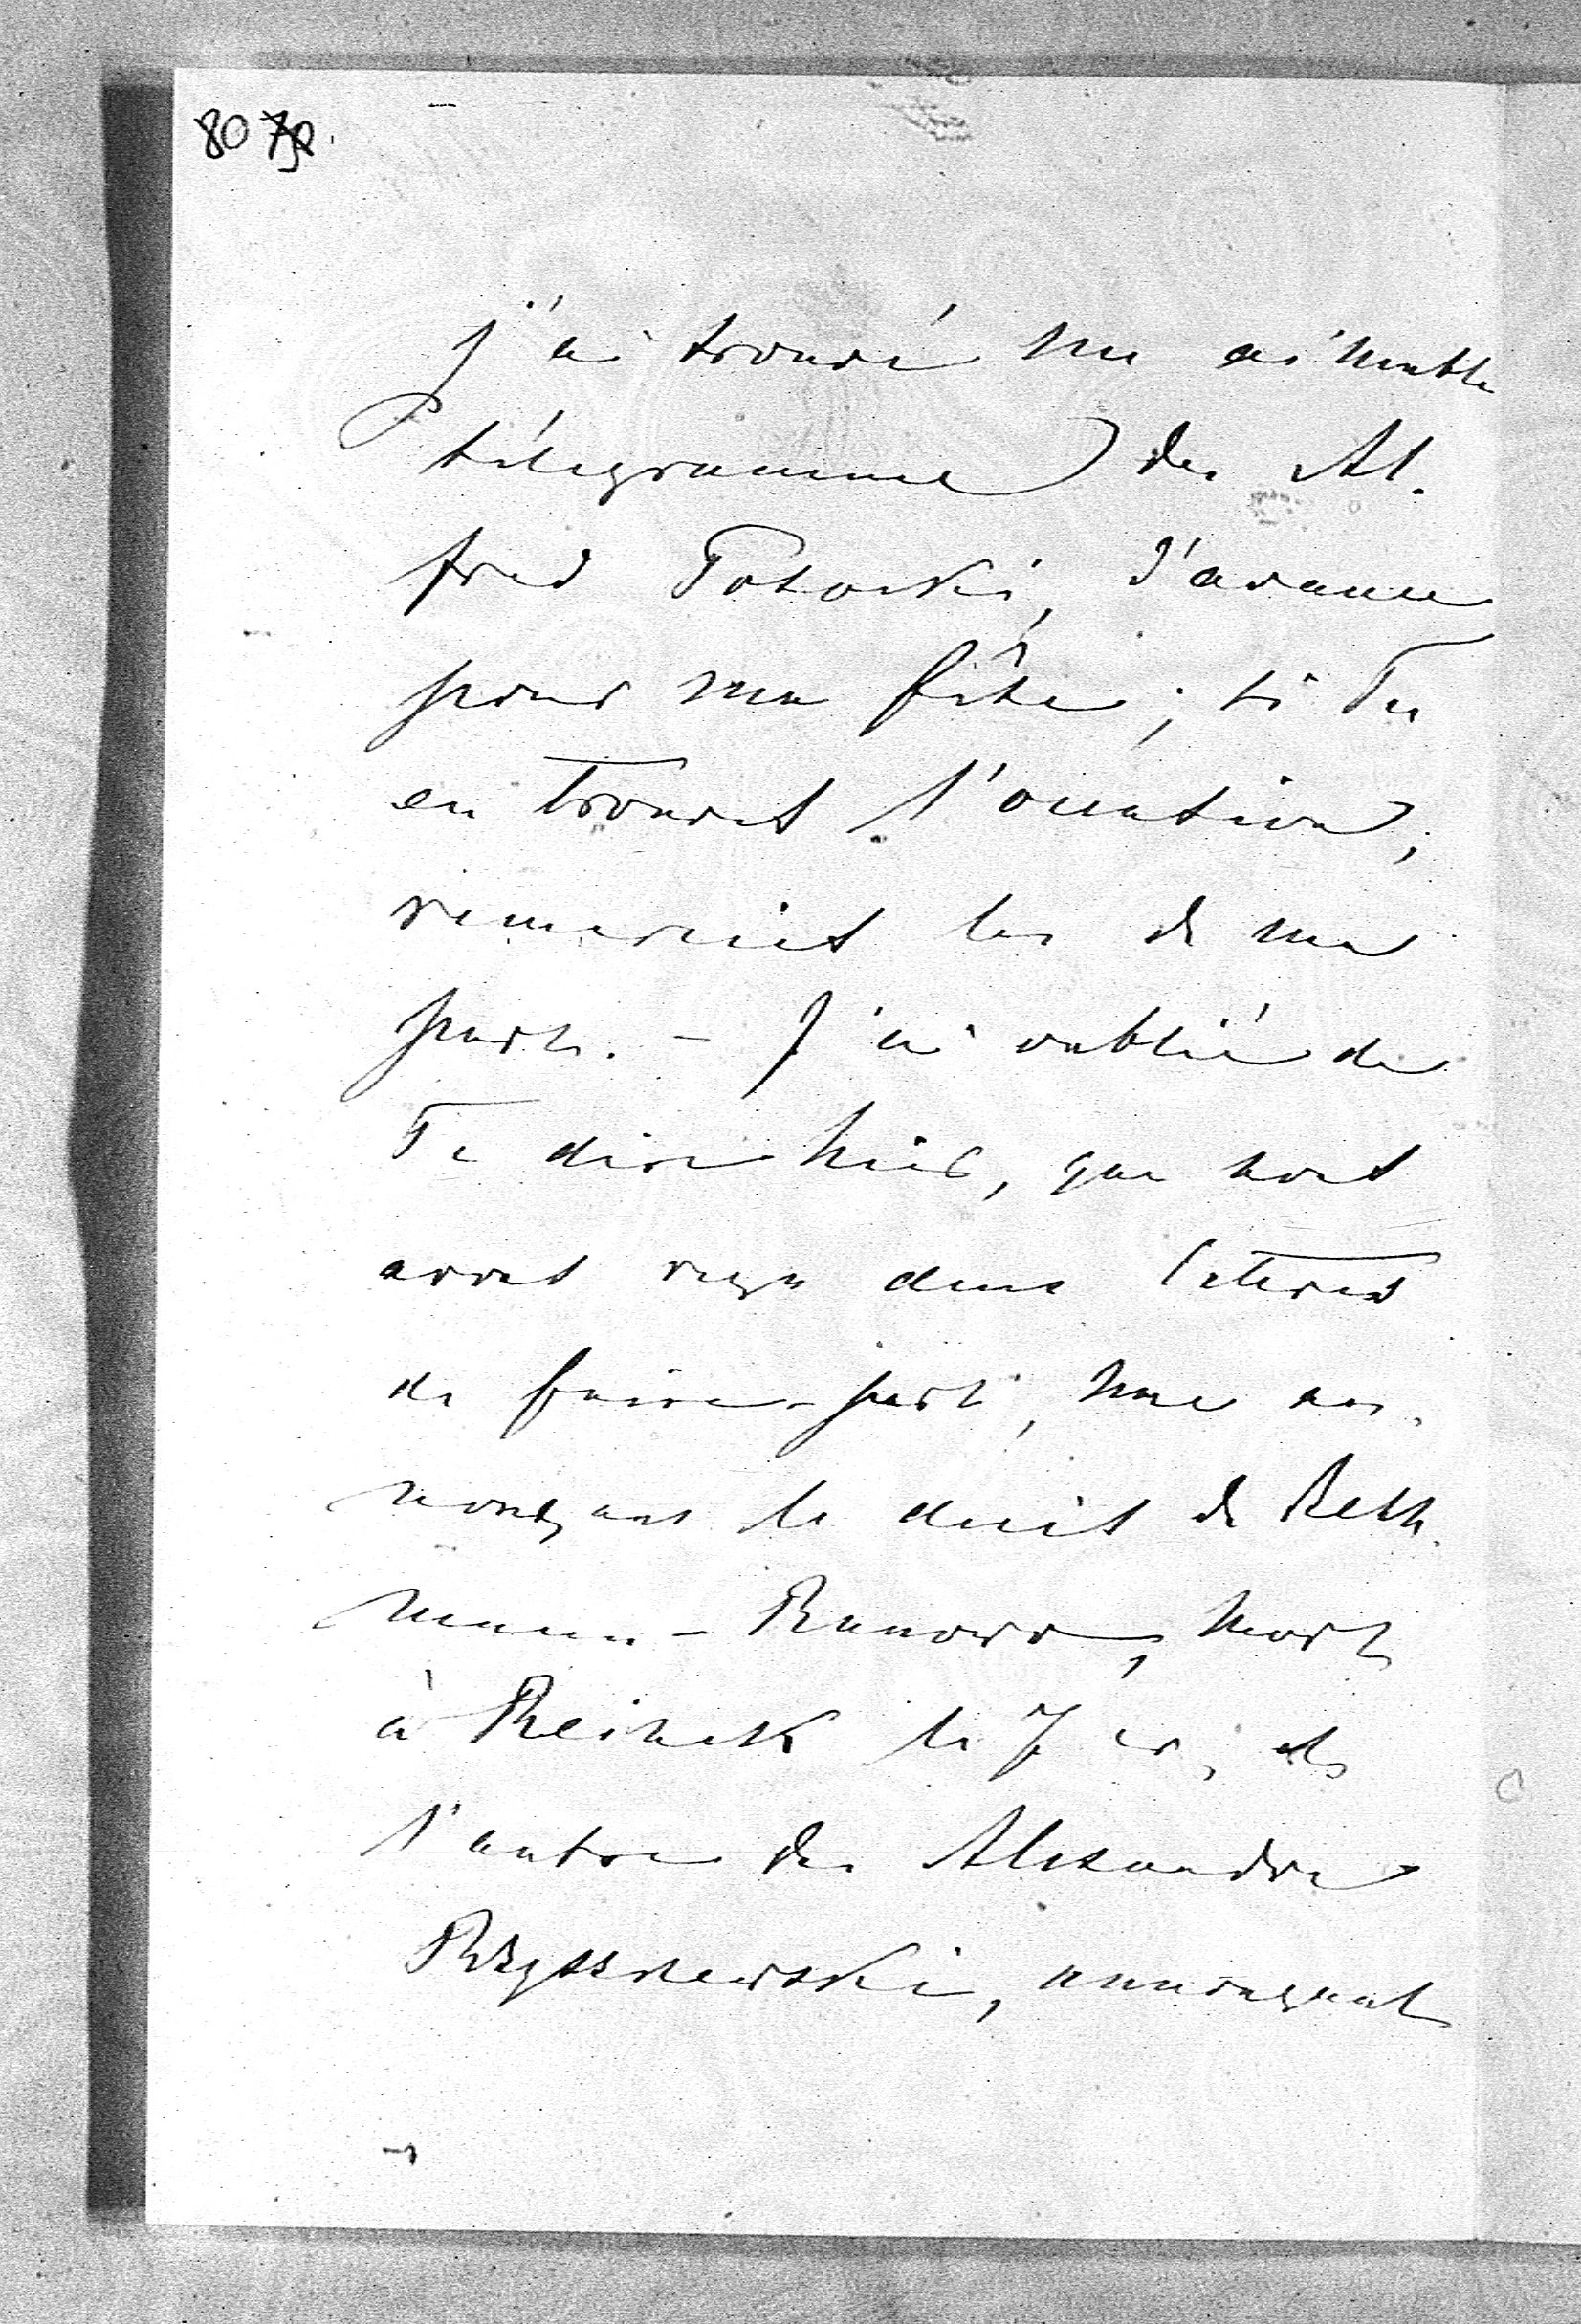 80 79.
J'ai trouvé un aimable
télégramme des Al-
fred Potocki, d'avance
pour ma fête; si Tu
en trouves l'occasion,
remercies les de ma
part. – J'ai oublié de
Te dire hier, que nous
avons reçu deux lettres
de faire-part, une an-
nonçant le décès de Beth-
mann-Runowo, mort
à le 7 cr, et
l'autre des Alexandre
Rzyszczewski, annonçant